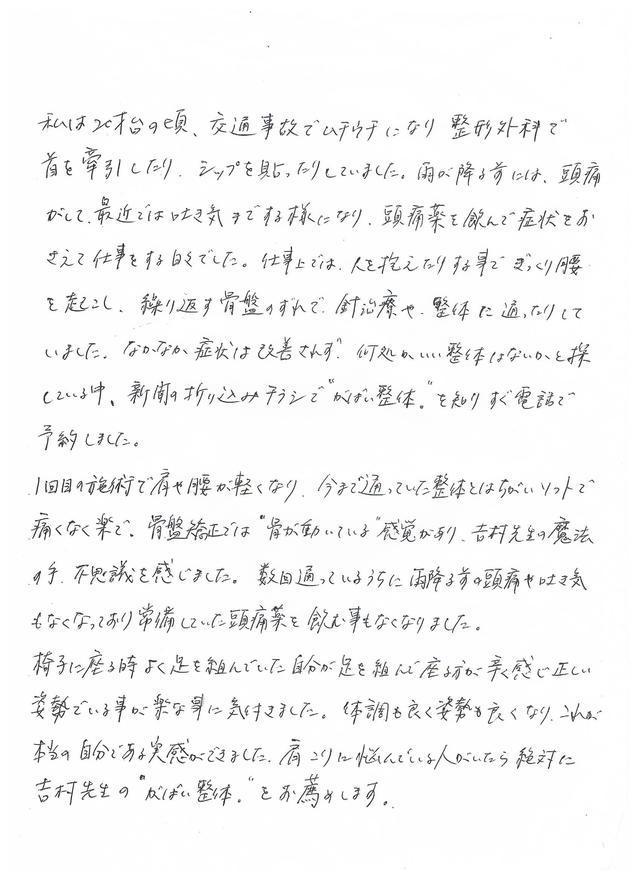 私は20才台の頃、交通事故でムチウチになり 整形外科で
首を牽引したり、シップを貼ったりしていました。雨が降る前には、頭痛
がして、最近では吐き気までする様になり、頭痛薬を飲んで症状をお
さえて仕事をする日々でした。仕事上では、人を抱えたりする事で ぎっくり腰
を起こし、繰り返す骨盤のずれで、針治療や、整体に通ったりして
いました。なかなか症状は改善されず、何処かいい整体はないかと探
している中、新聞の折り込みチラシで"がばい整体。"を知りすぐ電話で
予約しました。
1回目の施術で肩や腰が軽くなり、今まで通っていた整体とはちがいソフトで
痛くなく楽で、骨盤矯正では"骨が動いている"感覚があり、吉村先生の魔法
の手、不思議を感じました。数回通っているうちに雨降る前の頭痛や吐き気
もなくなっており常備していた頭痛薬を飲む事もなくなりました。
椅子に座る時よく足を組んでいた自分が足を組んで座る方が辛く感じ正しい
姿勢でいる事が楽な事に気付きました。体調も良く姿勢も良くなり、これが
本当の自分である実感ができました。肩こりに悩んでいる人がいたら絶対に
吉村先生の"がばい整体。"をお薦めします。